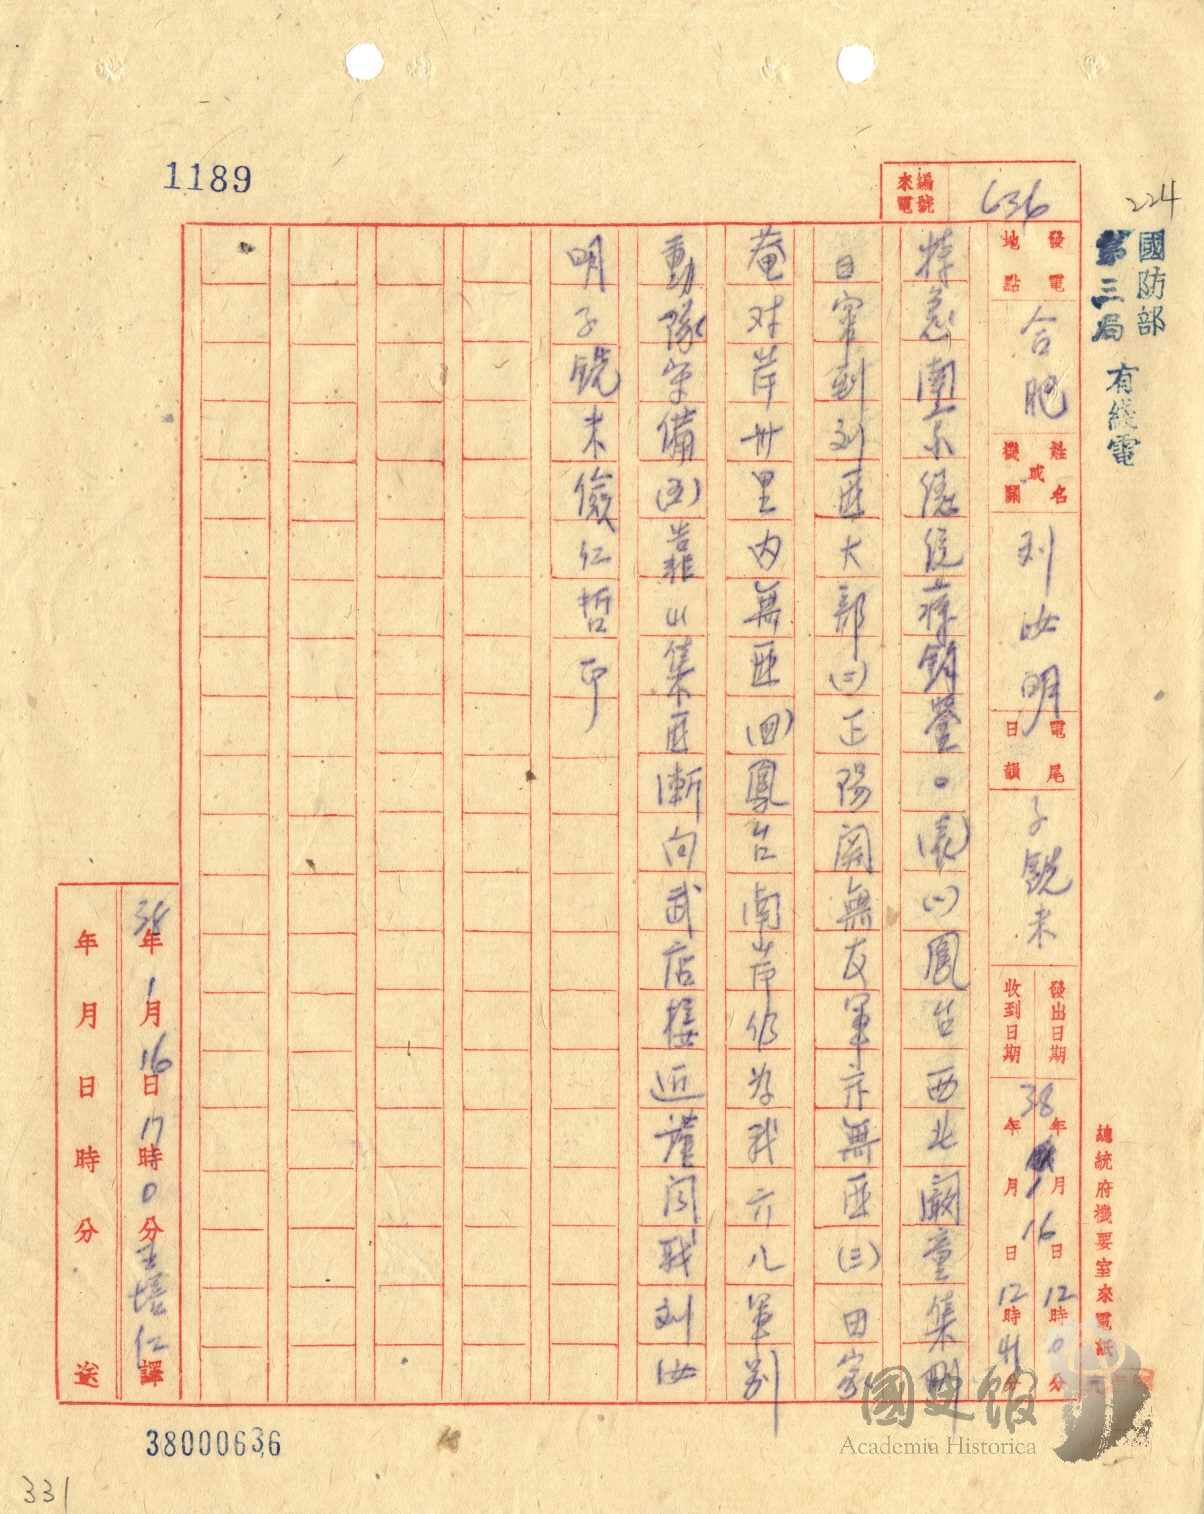 1189
224
國防部
第三局
有綫電
來電編號 636
發電地點 合肥
姓名或機關 刘汝明
電尾日韻 子銑未
發出日期 38年1月16日12時0分
收到日期 年月日12時41分
總統府機要室來電紙
特急南京總統蔣鈞鑒。(表)(一)鳳台西北闞疃集劉
日竄到刘匪大部(二)正陽関無友軍亦無匪(三)田家
菴对岸卅里內無匪(四)鳳台南岸仍为我六八軍別
動隊守備(五)靠山集匪漸向武店接近謹聞戰刘汝
明子銑未儉仁哲印
38年1月16日17時0分王培仁譯
年月日時分送
38000636
331
國史館
Academia Historica